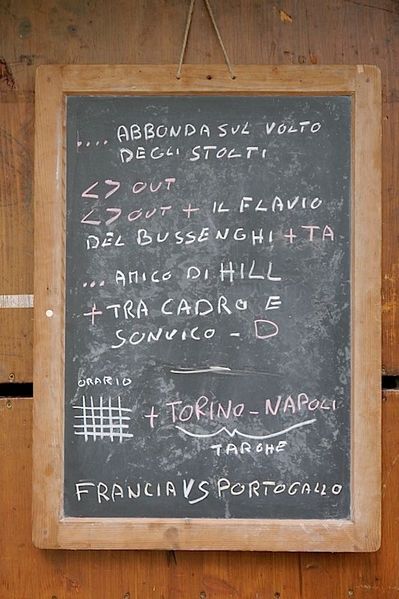 .... ABBONDA SUL VOLTO
DEGLI STOLTI
<> OUT
<> OUT + IL FLAVIO
DEL BUSSENGHI + TA
... AMICO DI HILL
+ TRA CADRO E
SONVICO - D
ORARIO
+ TORINO-NAPOLI
TARGHE
FRANCIA VS PORTOGALLO